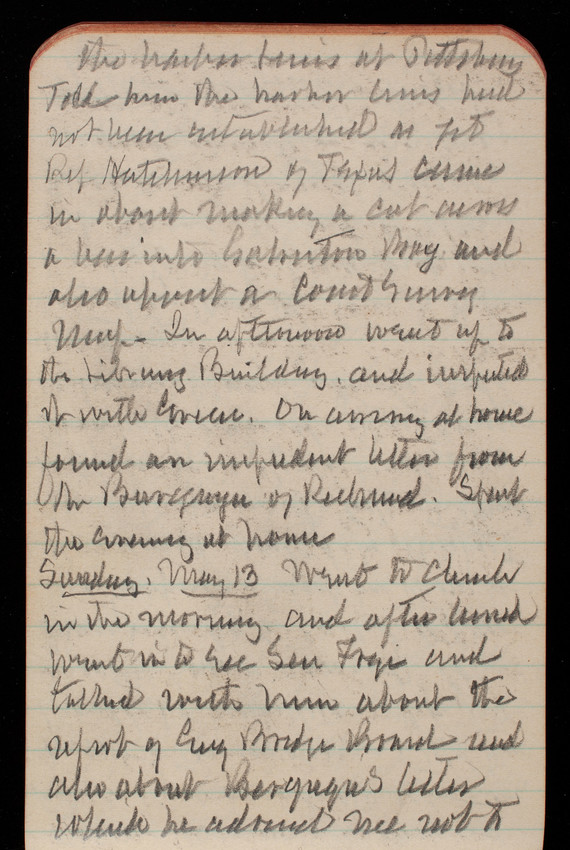 the harbor lines at Pittsburg
Told him the harbor lines had
not been established as yet
Rep Hutchinson of Texas came
in about making a cut across
a bar into Galveston Bay and
also about a Coast Survey
Map - In afternoon went up to
the Library Building. and inspected
it with Green. On arriving at home
found an impudent letter from
the of Richmond. Spent
the evening at home
Sunday, May 13 Went to church
in the morning and after lunch
went in to see Gen and
talked with him about the
report of Eng Bridge Board and
also about letter
which he advised me not to